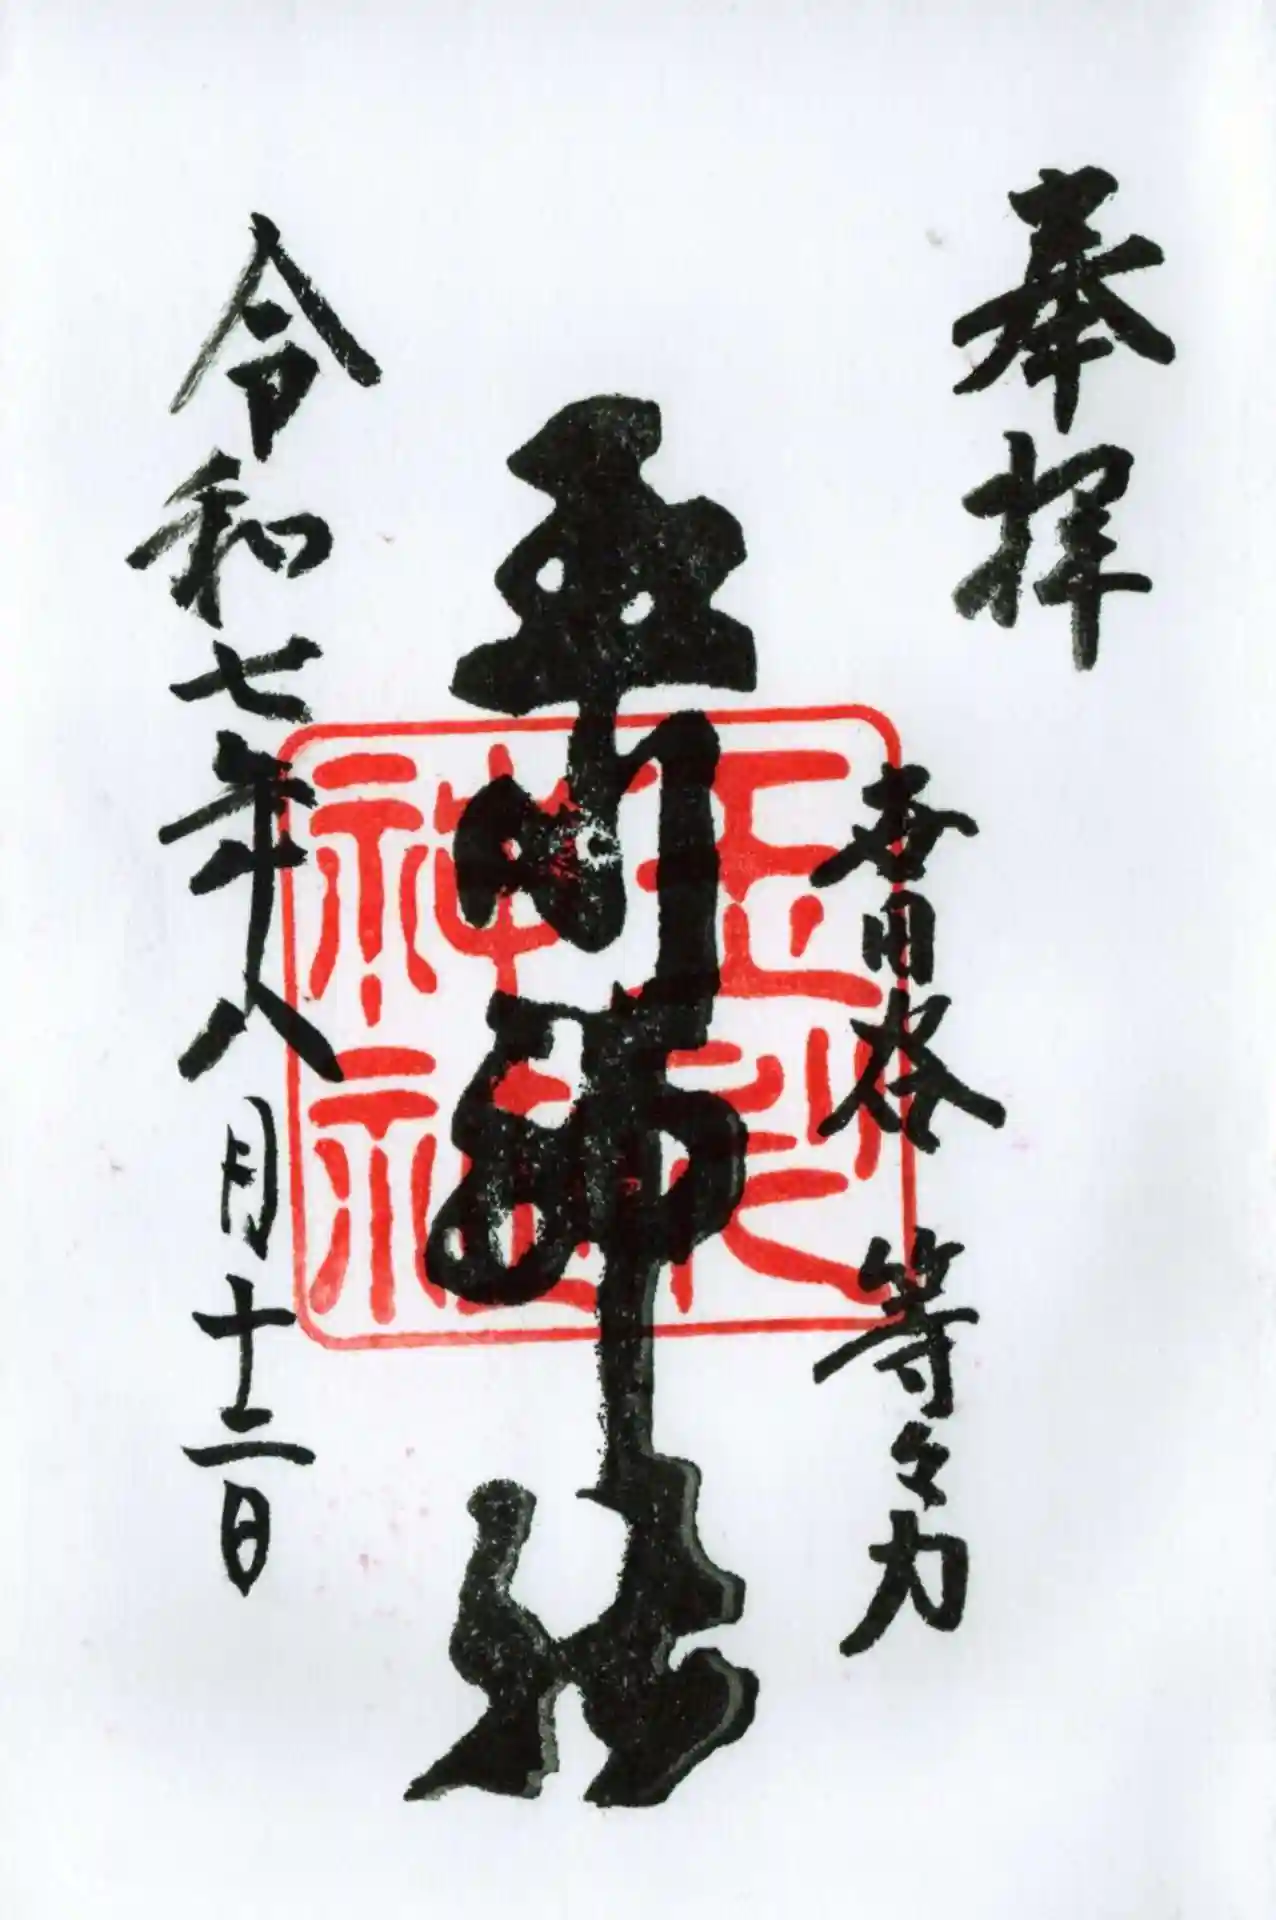 奉拝
世田谷 等々力
玉川神社
令和七年八月十二日